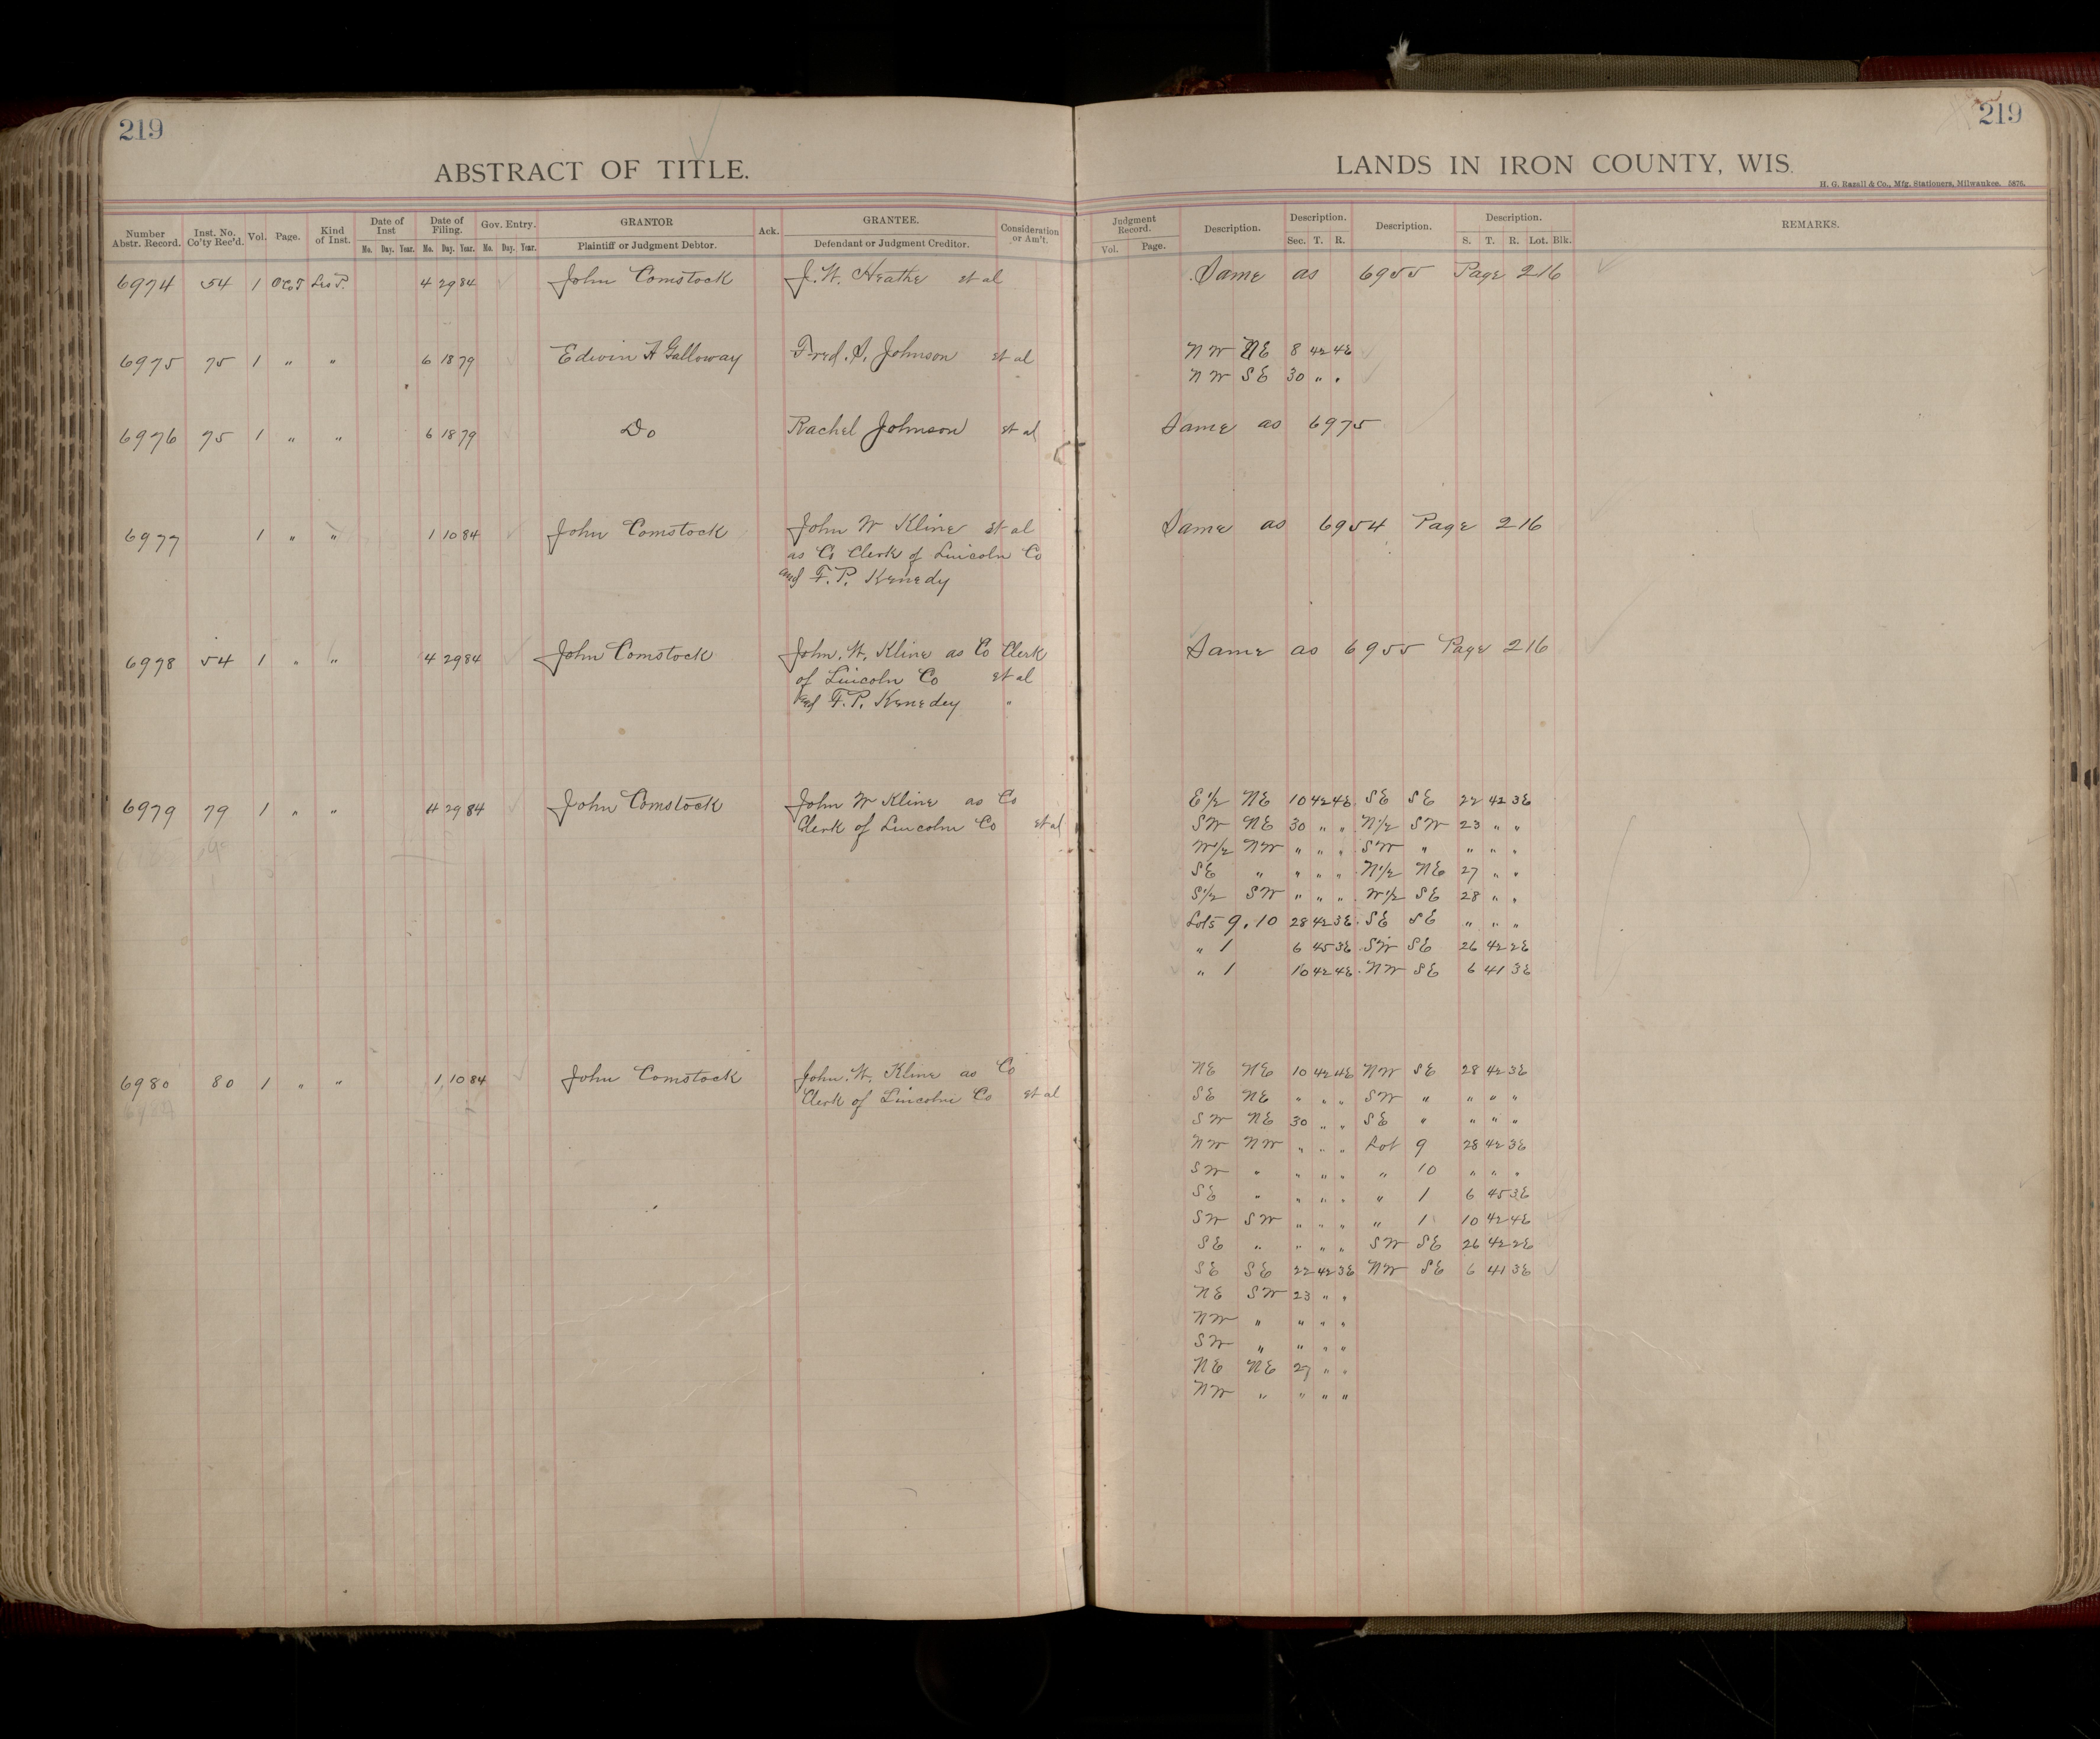 219
219
ABSTRACT OF TITLE.
LANDS IN IRON COUNTY, WIS.
H. G. Razall & Co., Mfg. Stationers, Milwaukee. 5876.
Number Abstr. Record. Inst. No. Co'ty Rec'd. Vol. Page. Kind of Inst. Date of Inst Mo. Day. Year. Date of Filing. Mo. Day. Year. Gov. Entry. Mo. Day. Year. GRANTOR Plaintiff or Judgment Debtor. Ack. GRANTEE. Defendant or Judgment Creditor. Consideration or Am't. Judgment Record. Vol. Page. Description. Description. Sec. T. R. Description. Description. S. T. R. Lot. Blk. REMARKS.
6974 54 1 Lis P. 4 29 84 John Comstock J. W. Heathe et al Same as 6955 Page 216
6975 75 1 " " 6 18 79 Edwin A Galloway Fred. S. Johnson et al NW NE 8 42 4E
NW SE 30 " "
6976 75 1 " " 6 18 79 Do Rachel Johnson et al Same as 6975
6977 1 " " 1 10 84 John Comstock John W Kline et al Same as 6954 Page 216
as Co Clerk of Lincoln Co
and F. P. Kenedy
6978 54 1 " " 4 29 84 John Comstock John. W. Kline as Co Clerk Same as 6955 Page 216
of Lincoln Co et al
and F. P. Kenedey "
6979 79 1 " " 4 29 84 John Comstock John W Kline as Co E1/2 NE 10 42 4E SE SE 22 42 3E
Clerk of Lincoln Co et al SW NE 30 " " N1/2 SW 23 " "
W1/2 NW " " " SW " " " "
SE " " " " N1/2 NE 27 " "
S1/2 SW " " " W1/2 SE 28 " "
Lots 9, 10 28 42 3E SE SE " " "
" 1 6 45 3E SW SE 26 42 2E
" 1 10 42 4E NW SE 6 41 3E
6980 80 1 " " 1 10 84 John Comstock John. W. Kline as Co NE NE 10 42 4E NW SE 28 42 3E
Clerk of Lincoln Co et al SE NE " " " SW " " " "
SW NE 30 " " SE " " " "
NW NW " " " Lot 9 28 42 3E
SW " " " " " 10 " " "
SE " " " " " 1 6 45 3E
SW SW " " " " 1 10 42 4E
SE " " " " SW SE 26 42 2E
SE SE 22 42 3E NW SE 6 41 3E
NE SW 23 " "
NW " " " "
SW " " " "
NE NE 27 " "
NW " " " "